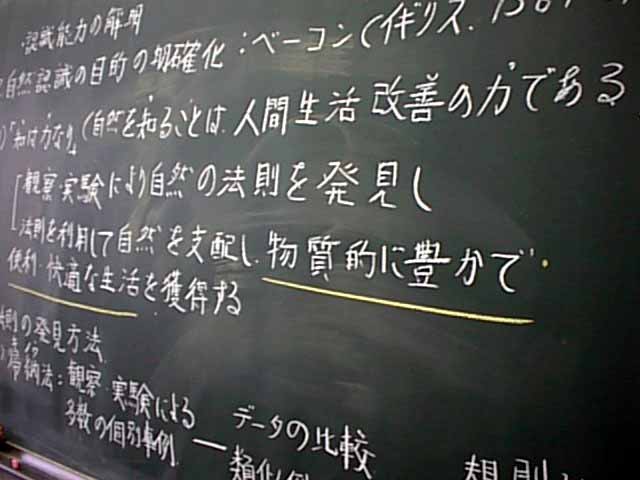 認識能力の解明
自然認識の目的の明確化：ベーコン（イギリス、1561
「知は力なり」（自然を"知る"ことは、人間生活改善の"力"である
観察・実験により自然の法則を発見し
法則を利用して自然を支配し、物質的に豊かで
便利・快適な生活を獲得する
則の発見方法
帰納法：観察・実験による
多数の個別事例 ― データの比較
類似 規則